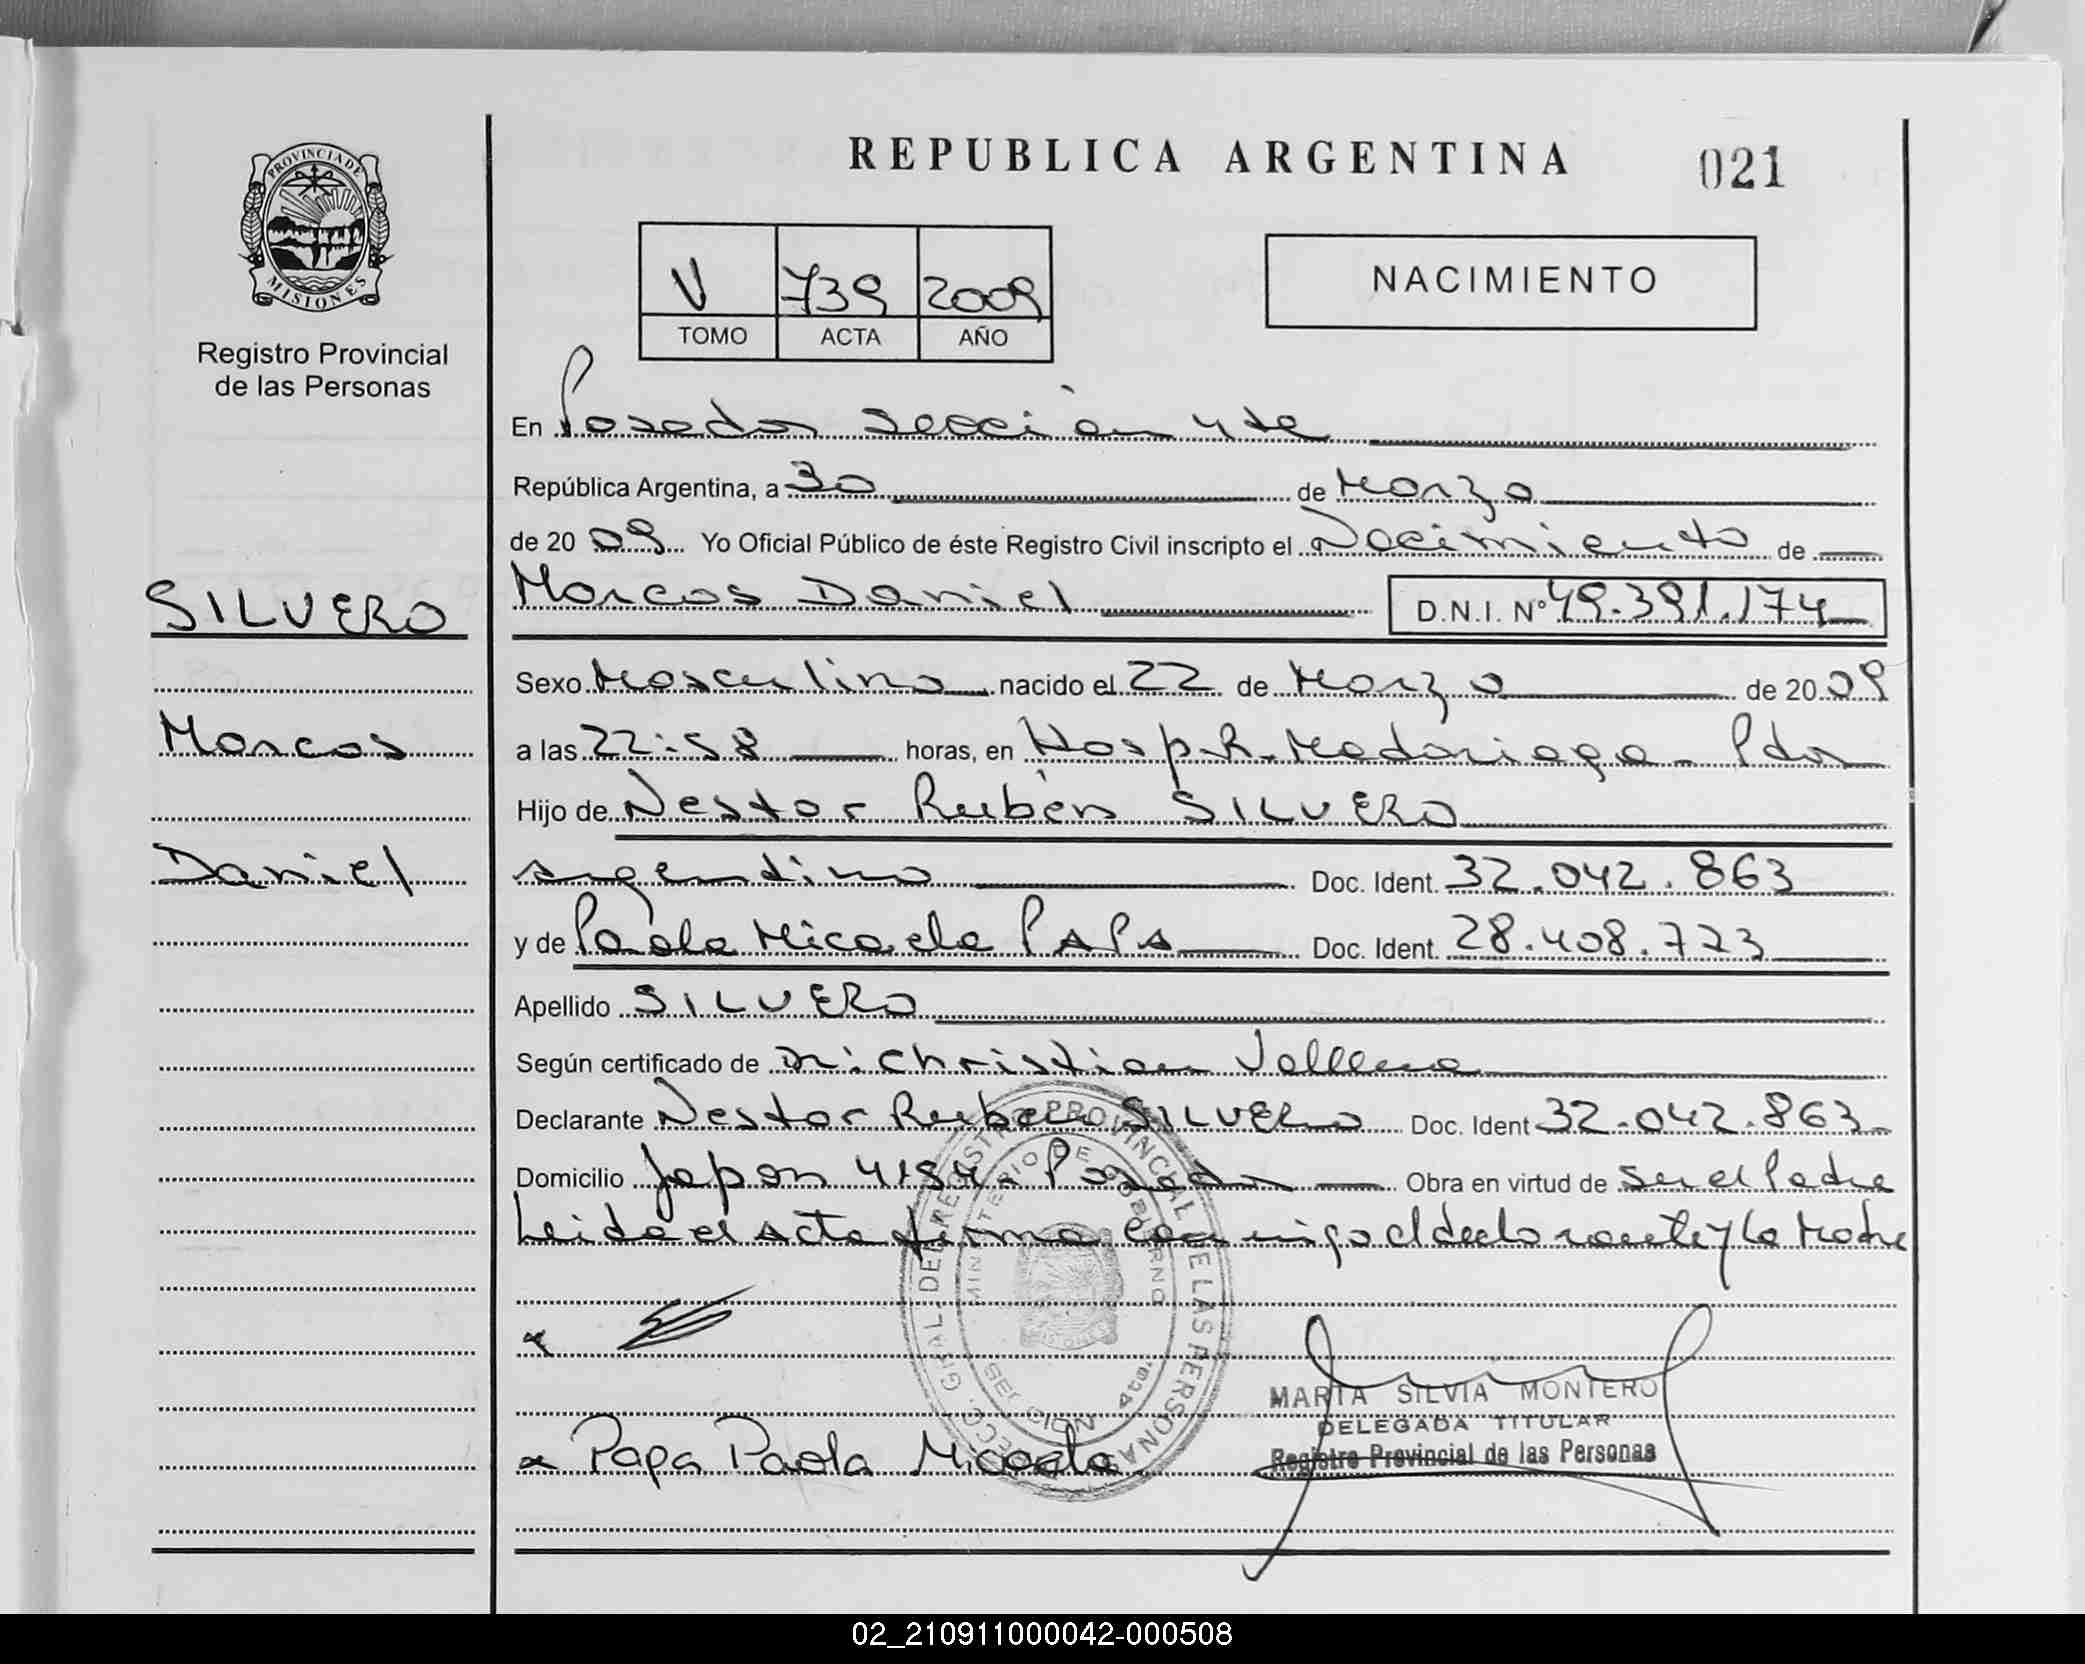 REPUBLICA ARGENTINA
021
PROVINCIA DE
MISIONES
Registro Provincial
de las Personas
V 739 2009
TOMO ACTA AÑO
NACIMIENTO
En Posadas Sección 4ta
República Argentina, a 30 de Marzo
de 2009 Yo Oficial Público de éste Registro Civil inscripto el Nacimiento de
SILVERO
Marcos Daniel D.N.I. Nº 49.391.174
Sexo Masculino nacido el 22 de Marzo de 2009
Marcos
a las 22:58 horas, en Hosp. R. Madariaga - Pdas
Hijo de Nestor Rubén SILVERO
Daniel
argentino Doc. Ident. 32.042.863
y de Paola Micaela PAPA Doc. Ident. 28.408.773
Apellido SILVERO
Según certificado de Dr. Christian
Declarante Nestor Ruben SILVERO Doc. Ident 32.042.863
Domicilio Japon Posadas Obra en virtud de Ser el Padre
Leida el Acta firma conmigo el declarante y la Madre
DIRECC. GRAL. DEL REGISTRO PROVINCIAL DE LAS PERSONAS
MINISTERIO DE GOBIERNO
SECCION 4ta
MISIONES
MARIA SILVIA MONTERO
DELEGADA TITULAR
Registro Provincial de las Personas
x Papa Paola Micaela
02_210911000042-000508